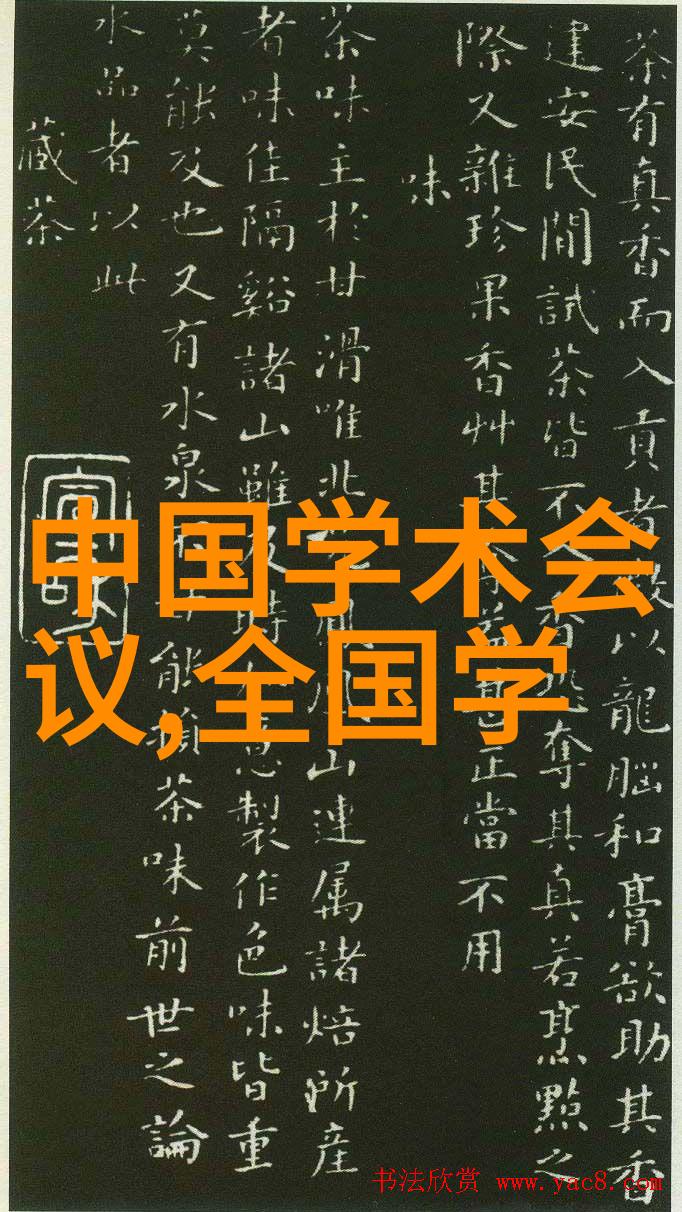 茶有真香而入貢者以龍腦和膏欲助其香
建安民間試茶皆不香奪其真若烹點之
際又雜珍果香艸其益正當不用
味
茶味主於甘滑唯北山連属諸焙所産
者味佳隔谿諸山雖及時意製作色味皆重
莫能及也又有水泉能損茶味前世之論
水品者以此
藏茶
中国学术会
议,全国学
书法欣赏 www.yac8.com